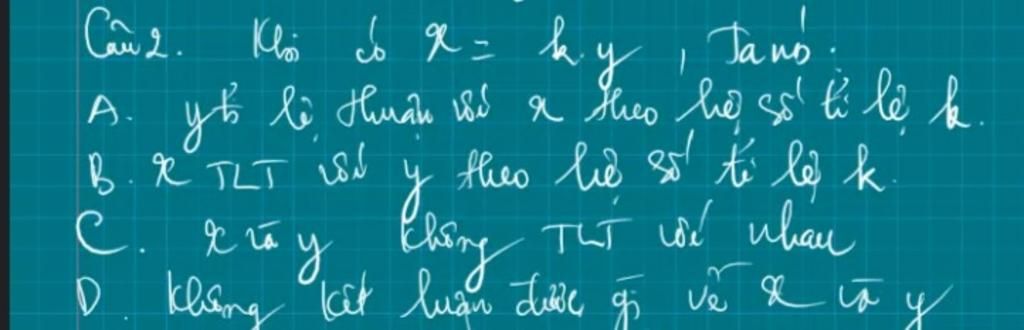 Câu 2. Khi có x = k.y, Ta nó:
A. y tỉ lệ thuận với x theo hệ số tỉ lệ k.
B. x TLT với y theo hệ số tỉ lệ k.
C. x và y không TLT với nhau
D. không kết luận được gì về x và y